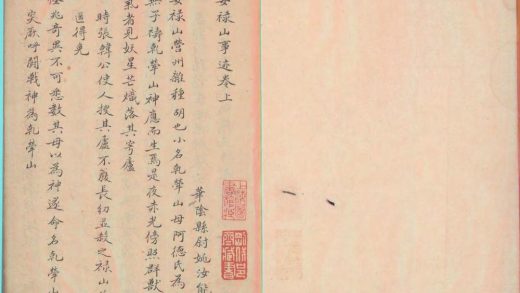 安禄山事迹卷上
華陰縣尉姚汝能
安禄山營州雜種胡也小名軋犖山母阿德氏為
無子禱軋犖山神應而生焉是夜赤光傍照群獸
氣者見妖星芒熾落其穹廬
時張韓公使人搜其廬不獲長幼並殺之禄山
匿得免
怪兆奇異不可悉數其母以為神遂命名軋犖山
突厥呼鬪戰神為軋犖山